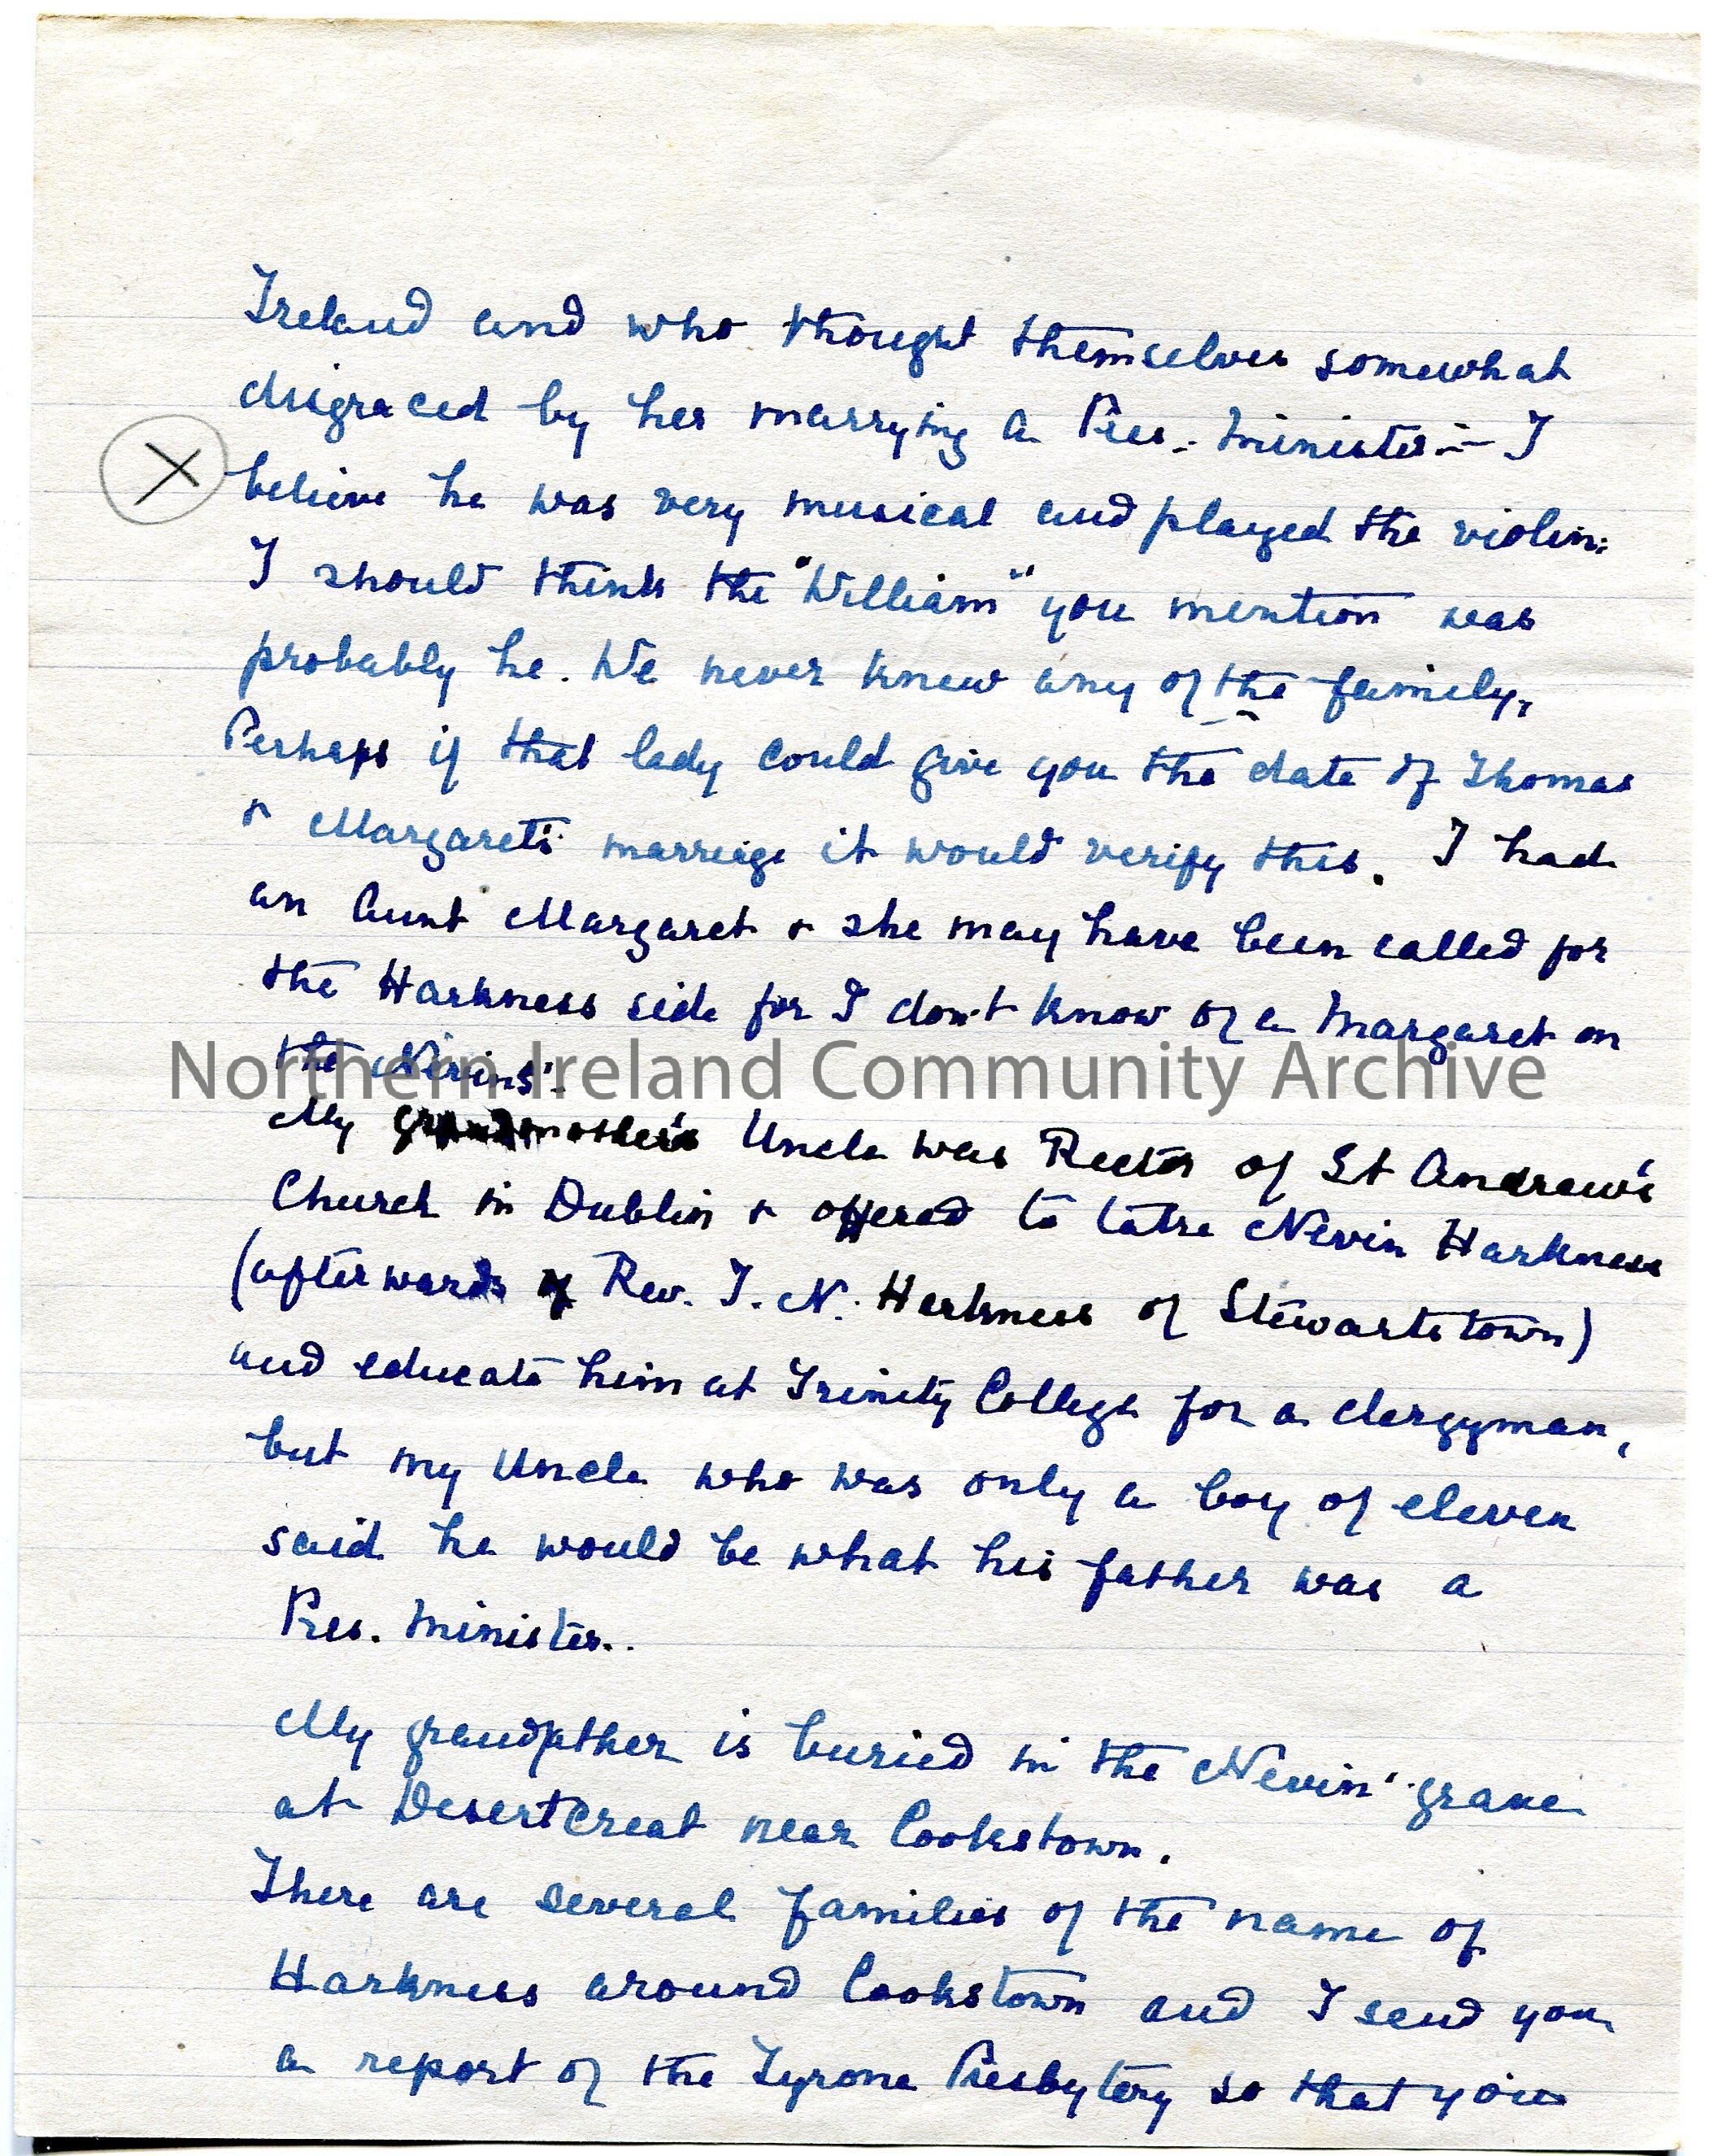 Ireland and who thought themselves somewhat
disgraced by her marrying a Pres. Minister - I
X believe he was very musical and played the violin.
I should think the "William" you mention was
probably he. We never knew any of the family.
Perhaps if that lady could give you the date of Thomas
& Margaret's marriage it would verify this. I had
an Aunt Margaret & she may have been called for
the Harkness side for I don't know of a Margaret on
the Nevins'.
Northern Ireland Community Archive
My grandmother's Uncle was Rector of St Andrew's
Church in Dublin & offered to take Nevin Harkness
(afterwards Rev. T. N. Harkness of Stewartstown)
and educate him at Trinity College for a clergyman,
but my Uncle who was only a boy of eleven
said he would be what his father was a
Pres. Minister.
My grandfather is buried in the Nevin' grave
at Desertcreat near Cookstown.
There are several families of the name of
Harkness around Cookstown and I send you
a report of the Tyrone Presbytery so that you